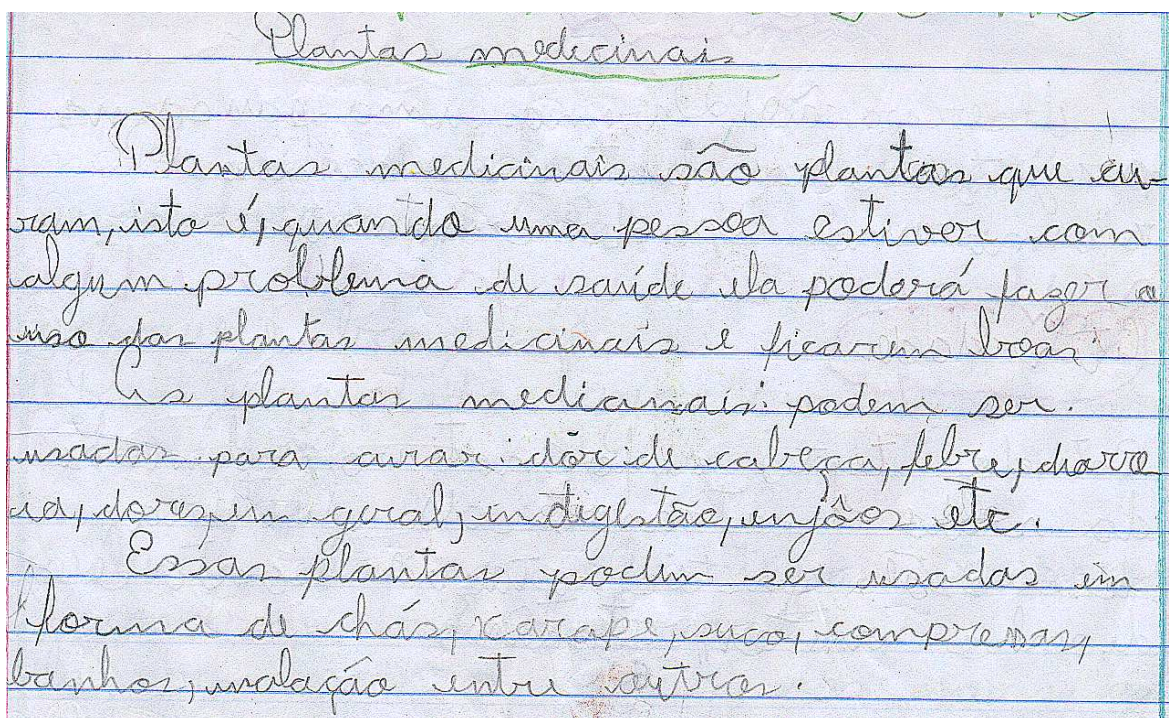 Plantas medicinais
Plantas medicinais são plantas que cu-
ram, isto é, quando uma pessoa estiver com
algum problema de saúde ela poderá fazer o
uso das plantas medicinais e ficarem boas.
As plantas medicinais podem ser.
usadas para curar dôr de cabeça, febre,
ia, dores, em geral, indigestão, enjôos etc.
Essas plantas podem ser usadas em
forma de chás, xarape, suco, compressas,
banhos, inalação entre outros.